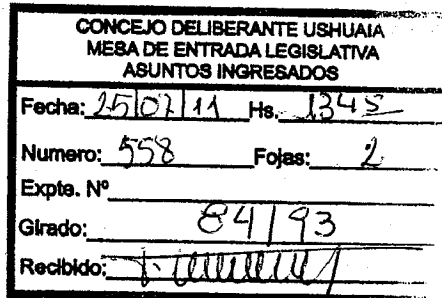 CONCEJO DELIBERANTE USHUAIA
MESA DE ENTRADA LEGISLATIVA
ASUNTOS INGRESADOS
Fecha: 25/07/11 Hs. 1345
Numero: 558 Fojas: 2
Expte. Nº
Girado: 84/93
Recibido: